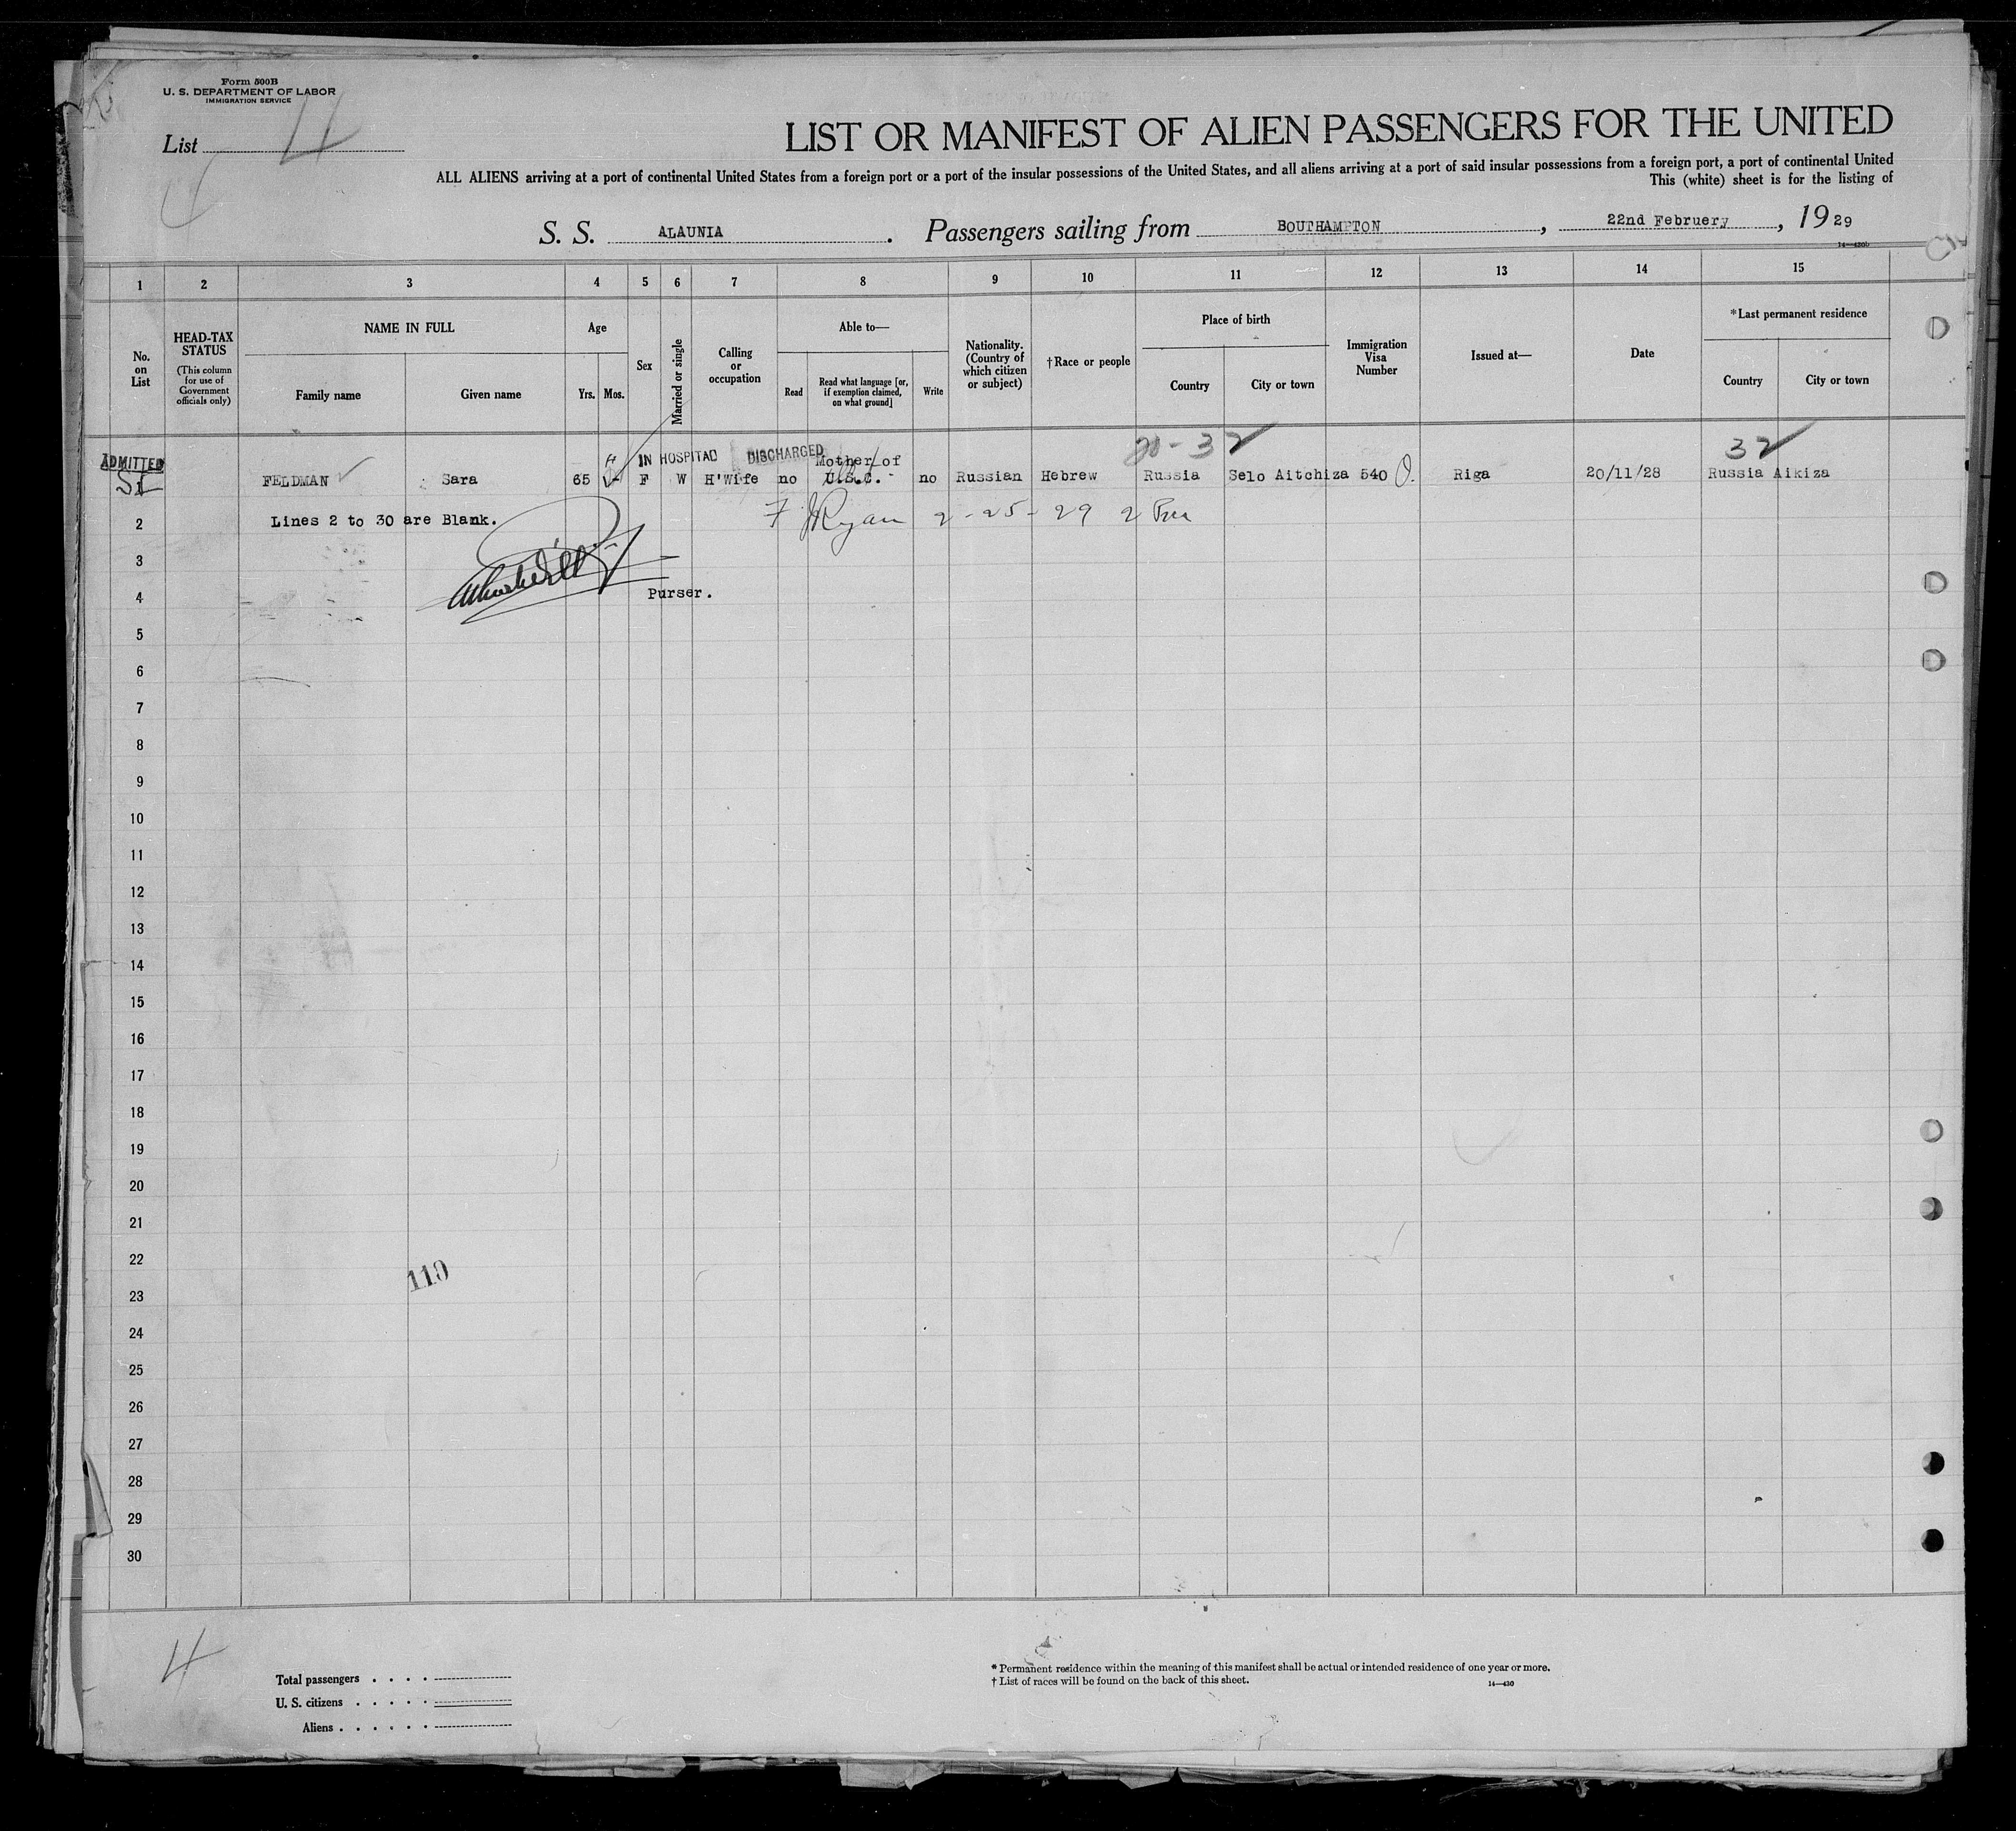 Form 500B
U. S. DEPARTMENT OF LABOR
IMMIGRATION SERVICE
List 4
4
LIST OR MANIFEST OF ALIEN PASSENGERS FOR THE UNITED
ALL ALIENS arriving at a port of continental United States from a foreign port or a port of the insular possessions of the United States, and all aliens arriving at a port of said insular possessions from a foreign port, a port of continental United
This (white) sheet is for the listing of
S. S. ALAUNIA. Passengers sailing from BOUTHAMPTON, 22nd Februery, 1929
14—430b
1 2 3 4 5 6 7 8 9 10 11 12 13 14 15
No. on List
HEAD-TAX STATUS
(This column for use of Government officials only)
NAME IN FULL
Family name
Given name
Age
Yrs. Mos.
Sex
Married or single
Calling or occupation
Able to—
Read
Read what language [or, if exemption claimed, on what ground]
Write
Nationality. (Country of which citizen or subject)
†Race or people
Place of birth
Country
City or town
Immigration Visa Number
Issued at—
Date
*Last permanent residence
Country
City or town
20-32 32
ADMITTED IN HOSPITAL DISCHARGED Mother of
SI 1 FELDMAN Sara 65 F W H'Wife no U.S.C. no Russian Hebrew Russia Selo Aitchiza 540 Riga 20/11/28 Russia Aikiza
2 Lines 2 to 30 are Blank. F J Ryan 2-25-29 2 Pm
3
4 Purser.
5
6
7
8
9
10
11
12
13
14
15
16
17
18
19
20
21
22
110
23
24
25
26
27
28
29
30
4
Total passengers
U. S. citizens
Aliens
* Permanent residence within the meaning of this manifest shall be actual or intended residence of one year or more.
† List of races will be found on the back of this sheet.
14—430